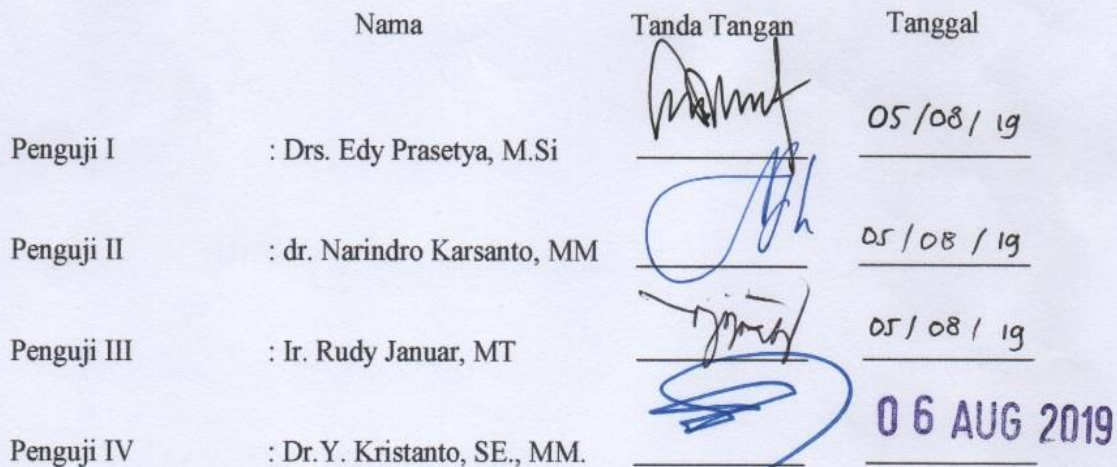 Nama Tanda Tangan Tanggal
Penguji I : Drs. Edy Prasetya, M.Si 05/08/19
Penguji II : dr. Narindro Karsanto, MM 05/08/19
Penguji III : Ir. Rudy Januar, MT 05/08/19
Penguji IV : Dr.Y. Kristanto, SE., MM. 06 AUG 2019